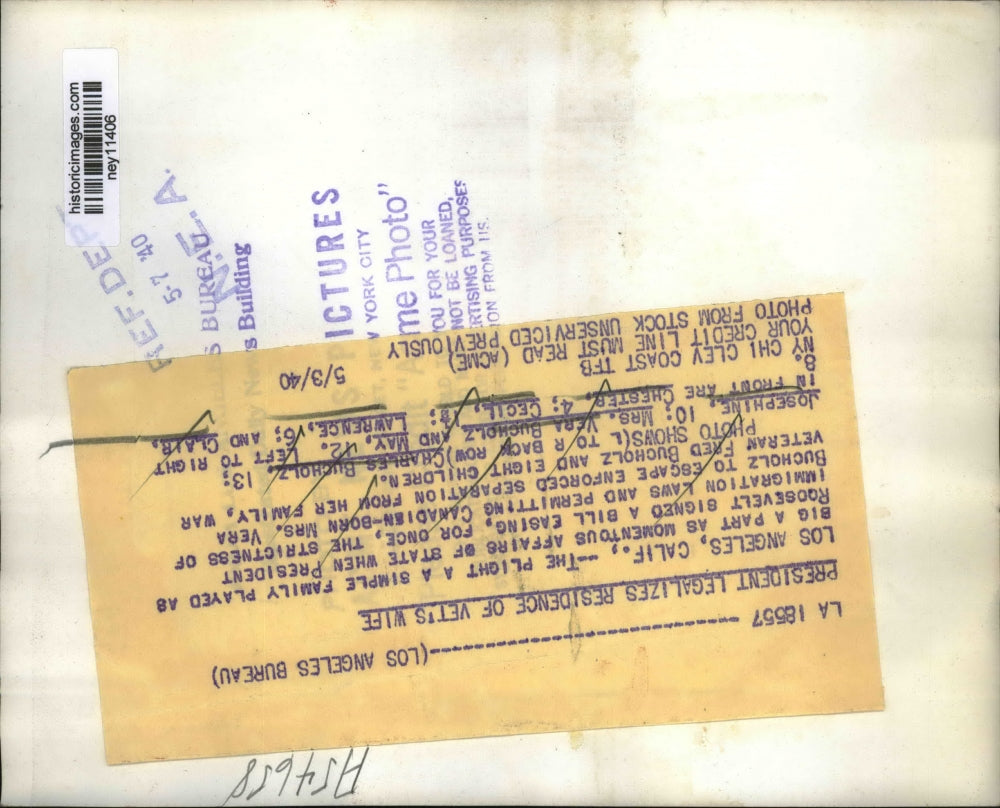 historicimages.com
ney11406
REF. DEP
5-7 '40
N.E.A.
S BUREAU
s Building
ICTURES
YORK CITY
me Photo"
OU FOR YOUR
NOT BE LOANED,
RTISING PURPOSES
ION FROM US.
LA 18557 (LOS ANGELES BUREAU)
PRESIDENT LEGALIZES RESIDENCE OF VET'S WIFE
LOS ANGELES, CALIF., --THE PLIGHT A SIMPLE FAMILY PLAYED AS
BIG A PART AS MOMENTOUS AFFAIRS OF STATE WHEN PRESIDENT
ROOSEVELT SIGNED A BILL EASING, FOR ONCE, THE STRICTNESS OF
IMMIGRATION LAWS AND PERMITTING CANADIAN-BORN MRS. VERA
BUCHOLZ TO ESCAPE ENFORCED SEPARATION FROM HER FAMILY, WAR
VETERAN FRED BUCHOLZ AND EIGHT CHILDREN.
PHOTO SHOWS(L TO R BACK ROW)CHARLES BUCHOLZ, 13;
JOSEPHINE, 10; MRS. VERA BUCHOLZ AND MAY, 12. LEFT TO RIGHT
IN FRONT ARE CHESTER, 4; CECIL, LAWRENCE, 6, AND CLAIR,
8.
NY CHI CLEV COAST TFB 5/3/40
YOUR CREDIT LINE MUST READ (ACME)
PHOTO FROM STOCK UNSERVICED PREVIOUSLY